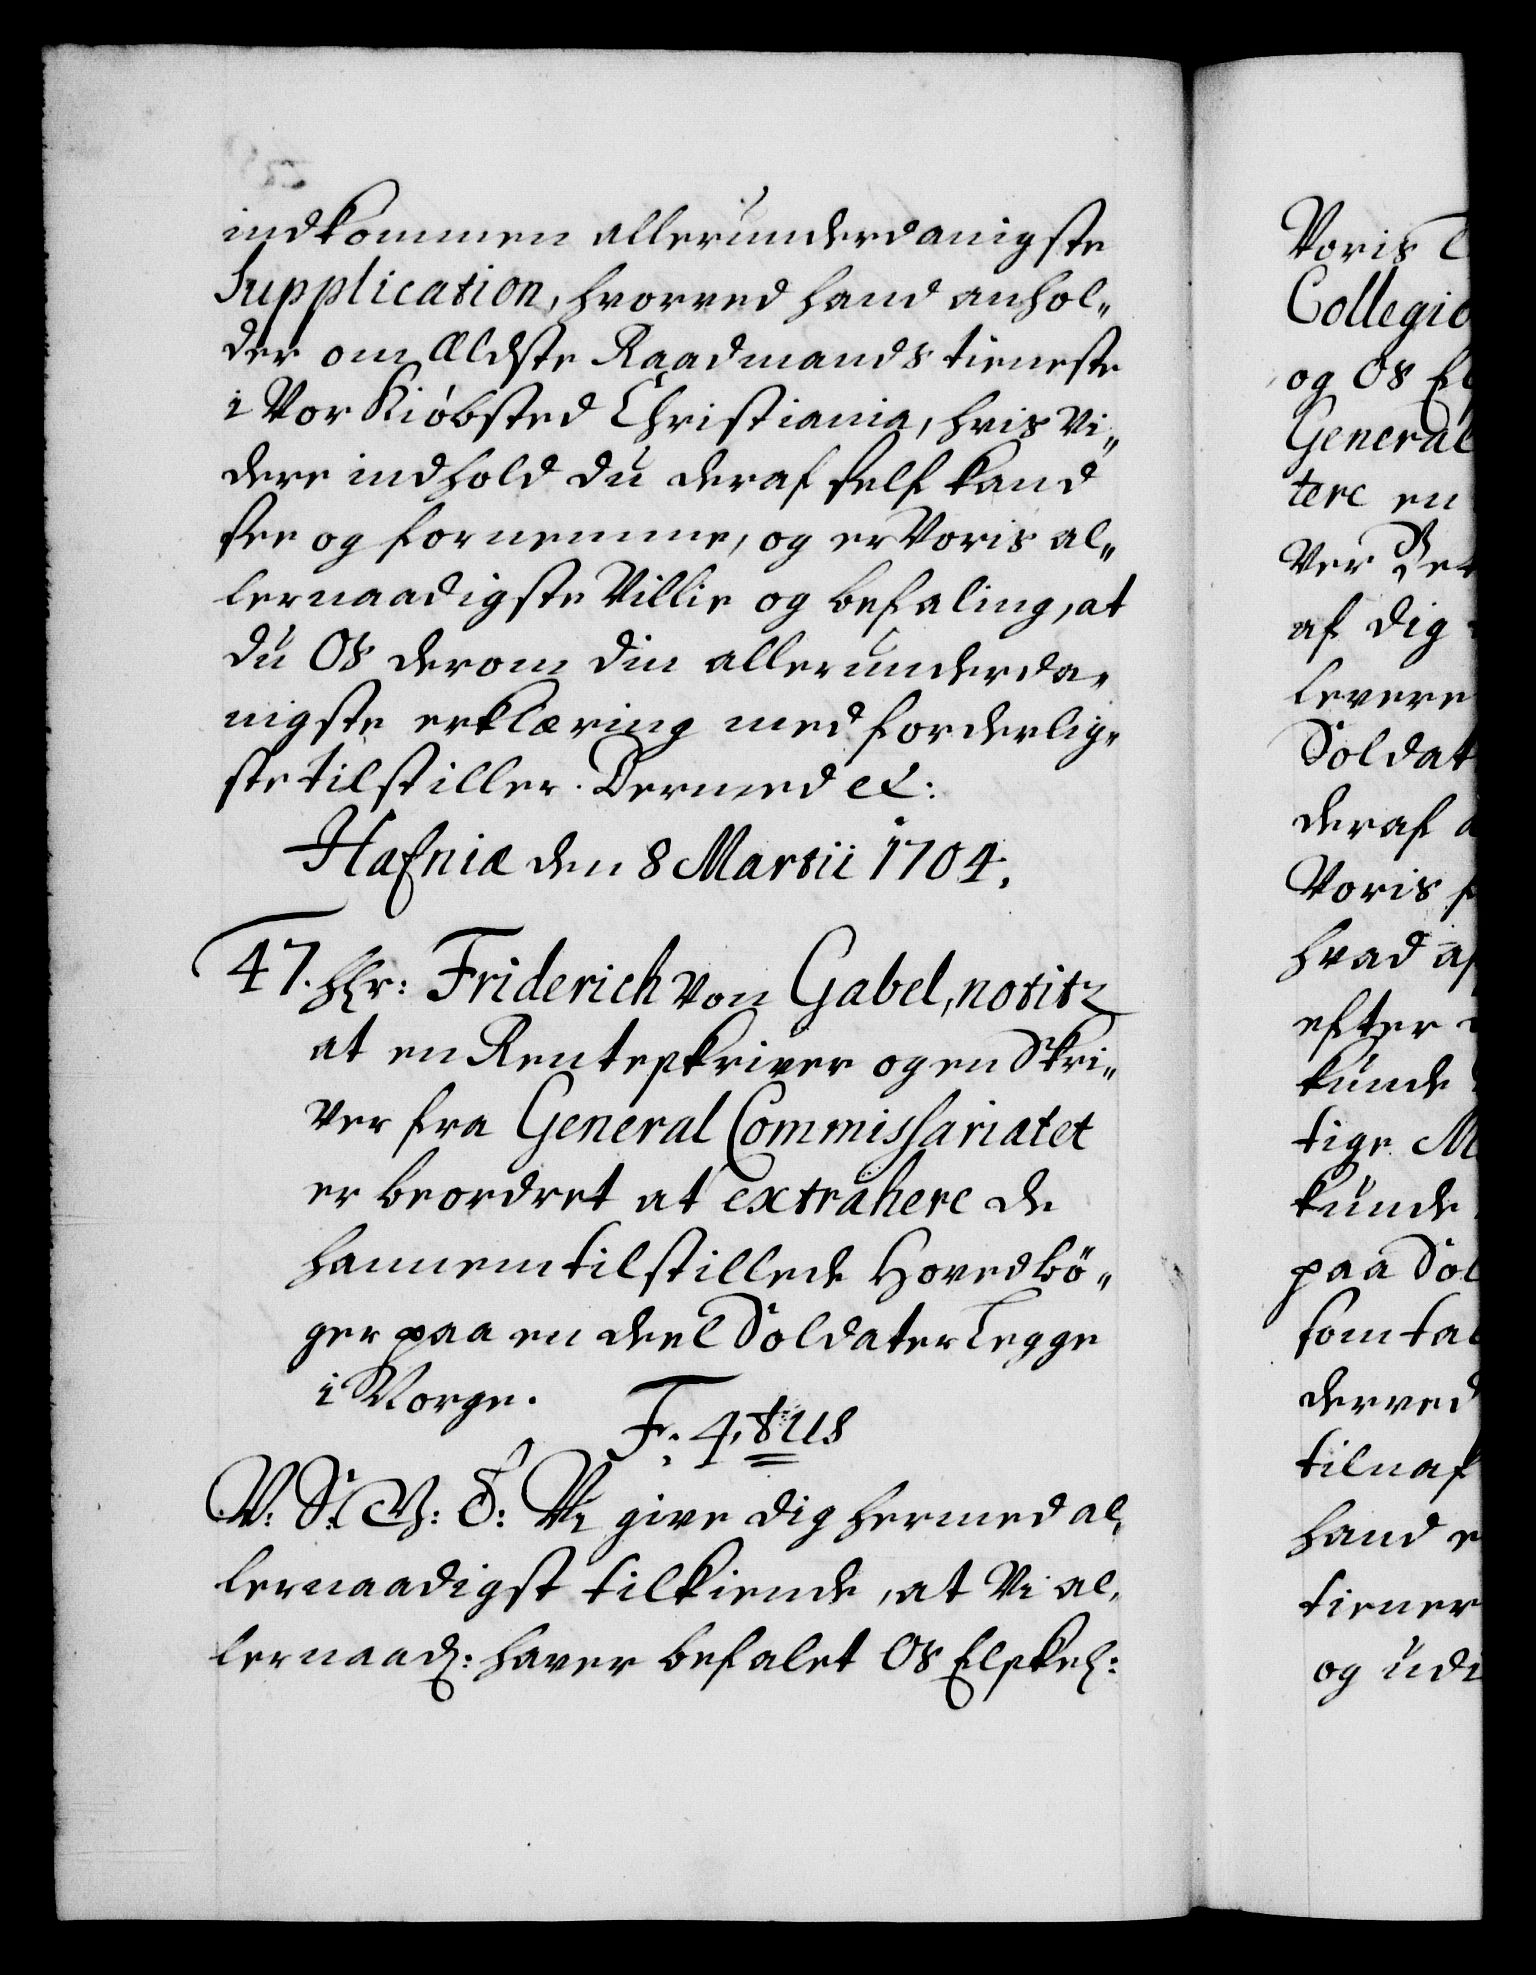 indkommen allerunderdanigste
Supplication, hvorved hand anhol„
der om Ældste Raadmands tieneste
i Vor Kiøbsted Christiania, hvis Vi„
dere indhold du deraf self kand
see og fornemme, og er Voris al„
lernaadigste Villie og befaling, at
du Os derom din allerunderda„
nigste erklæring med forderlig„
ste tilstiller. Dermed etc:
Hafniæ den 8 Martii 1704.
47. Hr: Friderich von Gabel, notitz
at en Renteskriver og en Skri„
ver fra General Commissariatet
er beordret at extrahere de
hannem tilstillede Hovedbö„
ger paa en deel Soldater Legge
i Norge.
F: 4.tus
V: S: G: T: Vi give dig hermed al„
lernaadigst tilkiende, at Vi al„
lernaad: haver befalet Os Elskel:
Voris
Collegio
og Os El
General
tere en
ver
af dig
levere
Soldat
deraf
Voris
hvad af
efter
kunde
tige
kunde
paa Sol
som tal
derved
tilnaf
hand
tiener
og udi